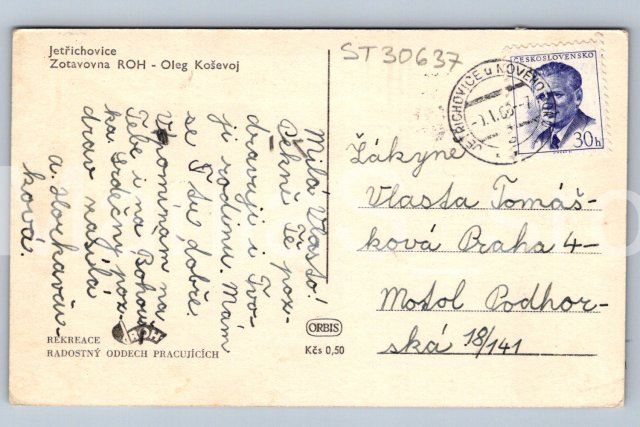 Jetřichovice
Zotavovna ROH - Oleg Koševoj
ST30637
ČESKOSLOVENSKO
30h
JETŘICHOVICE u NOVÉHO BORU
Milá Vlasto!
Pěkně Tě poz-
dravuji i Tvo-
ji rodinu. Mám
se Tu dobře.
Vzpomínám na
Tebe i na Bohouš-
ka. Srdečný poz-
drav nasílá
a. Horhavču-
ková.
Žákyne
Vlasta Tomáš-
ková Praha 4-
Motol Podhor-
ská 18/141
REKREACE
ROH
RADOSTNÝ ODDECH PRACUJÍCÍCH
ORBIS
Kčs 0,50